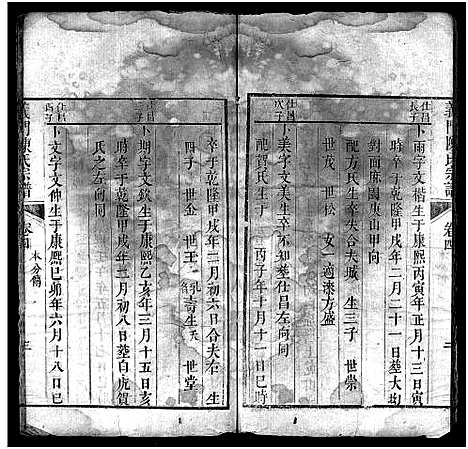 義門陳氏宗譜
卷四
仕昌
長子
卜雨字文楷生于康熙丙寅年正月十三日寅
時卒于乾隆甲戌年二月二十一日葬大垅
對面麻園東山甲向
配方氏生卒失合夫城 生三子 世崇
世茂 世松 女一適漆方盛
仕昌
次子
卜美字文美生卒不知葬仕昌左向同
配賀氏生于 丙子年十月十一日巳時
卒于乾隆甲戌年二月初六日合夫右 生
四子 世金 世王 世堂
仕昌
三子
卜期字文欽生于康熙乙亥年三月十五日亥
時卒于乾隆甲戌年二月初八日葬白虎賀
氏之左向同
仕昌
四子
卜文字文仲生于康熙己卯年六月十八日巳
義門陳氏宗譜
卷四
本分脩